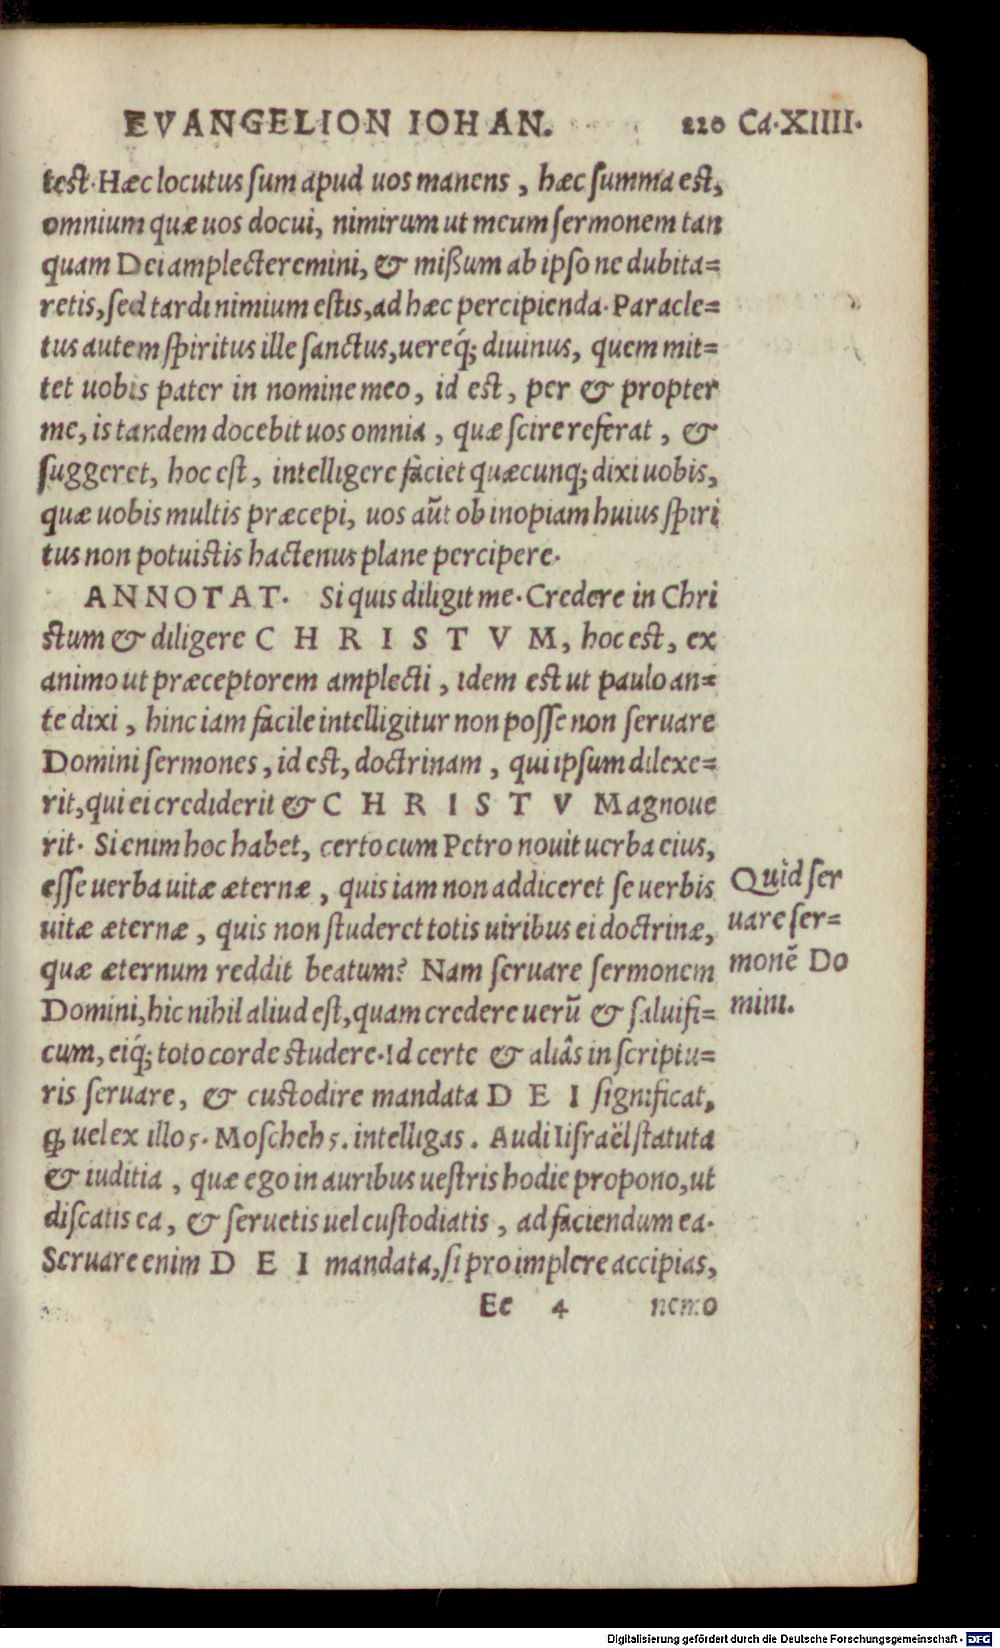 EVANGELION IOHAN. 220 Ca.XIIII.
test. Hæc locutus sum apud uos manens, hæc summa est,
omnium quæ uos docui, nimirum ut meum sermonem tan
quam Dei amplecteremini, & mißum ab ipso ne dubita=
retis, sed tardi nimium estis, ad hæc percipienda. Paracle=
tus autem spiritus ille sanctus, uereq́; diuinus, quem mit=
tet uobis pater in nomine meo, id est, per & propter
me, is tandem docebit uos omnia, quæ scire referat, &
suggeret, hoc est, intelligere faciet quæcunq; dixi uobis,
quæ uobis multis præcepi, uos aũt ob inopiam huius spiri
tus non potuistis hactenus plane percipere.
ANNOTAT. Si quis diligit me. Credere in Chri
stum & diligere CHRISTVM, hoc est, ex
animo ut præceptorem amplecti, idem est ut paulo an=
te dixi, hinc iam facile intelligitur non posse non seruare
Domini sermones, id est, doctrinam, qui ipsum dilexe=
rit, qui ei crediderit & CHRISTVM agnoue
rit. Si enim hoc habet, certo cum Petro nouit uerba eius,
esse uerba uitæ æternæ, quis iam non addiceret se uerbis
uitæ æternæ, quis non studeret totis uiribus ei doctrinæ,
quæ æternum reddit beatum? Nam seruare sermonem
Domini, hic nihil aliud est, quam credere uerũ & saluifi=
cum, eiq́; toto corde studere. Id certe & aliâs in scriptu=
ris seruare, & custodire mandata DEI significat,
ꝙ uel ex illo 5. Moscheh 5. intelligas. Audi Iisraël statuta
& iuditia, quæ ego in auribus uestris hodie propono, ut
discatis ea, & seruetis uel custodiatis, ad faciendum ea.
Seruare enim DEI mandata, si pro implere accipias,
Ee 4 nemo
Quid ser
uare ser=
monẽ Do
mini.
Digitalisierung gefördert durch die Deutsche Forschungsgemeinschaft - DFG